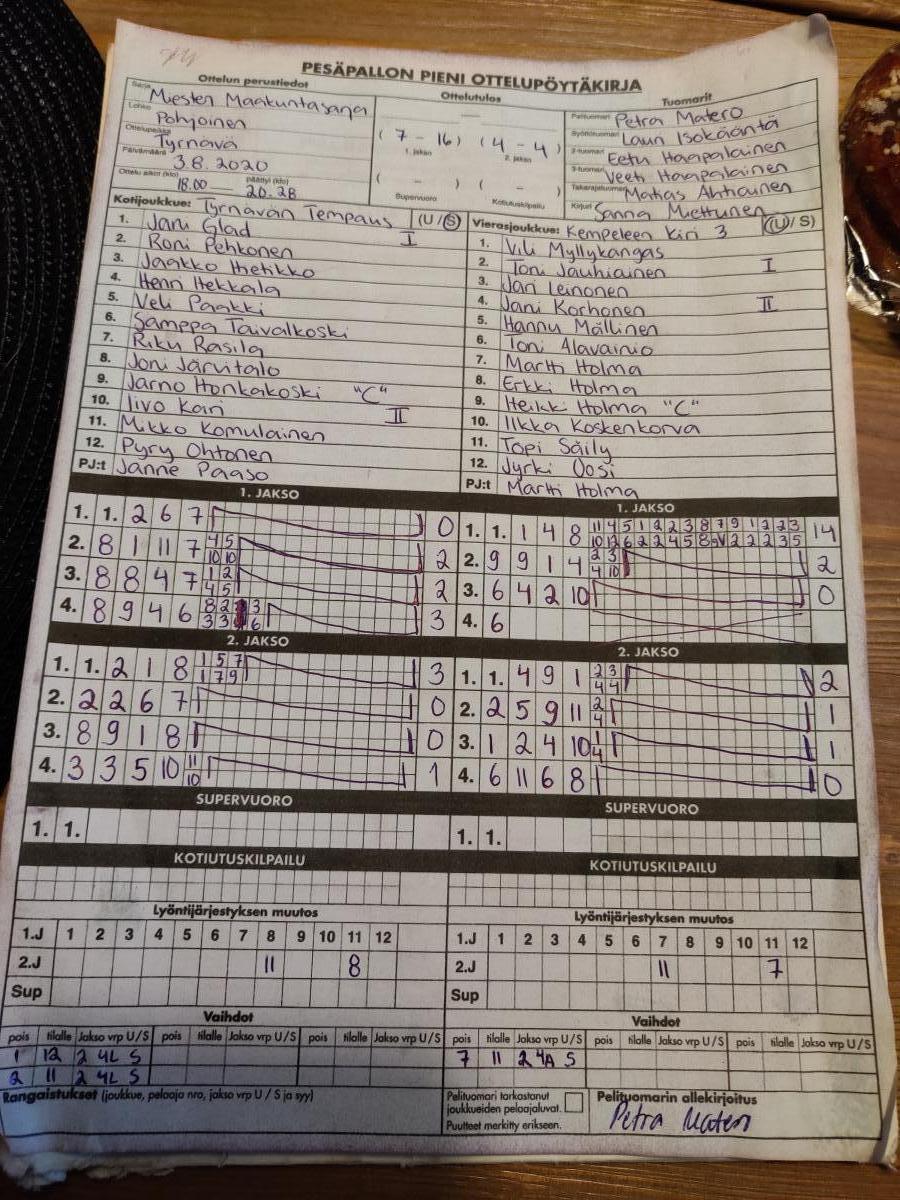 PESÄPALLON PIENI OTTELUPÖYTÄKIRJA
Ottelun perustiedot
Sarja Miesten Maakuntasarja
Lohko Pohjoinen
Ottelupaikka Tyrnävä
Päivämäärä 3.8.2020
Ottelu alkoi (klo) 18.00 päättyi (klo) 20.28
Ottelutulos
(7 - 16) (4 - 4)
1. jakso 2. jakso
( - ) ( - )
Supervuoro Kotiutuskilpailu
Tuomarit
Pelituomari Petra Matero
Syöttötuomari Lauri Isokääntä
2-tuomari Eetu Haapalainen
3-tuomari Veeti Haapalainen
Takarajatuomari Matias Ahtiainen
Kirjuri Sanna Miettunen
Kotijoukkue: Tyrnävän Tempaus (U/S)
1. Jani Glad I
2. Roni Pehkonen
3. Jaakko Hiehkko
4. Henri Hekkala
5. Veli Paakki
6. Samppa Taivalkoski
7. Riku Rasila
8. Joni Järvitalo
9. Jarno Honkakoski "C"
10. Iivo Kari II
11. Mikko Komulainen
12. Pyry Ohtonen
PJ:t Janne Paaso
Vierasjoukkue: Kempeleen Kiri 3 (U/S)
1. Vili Myllykangas
2. Toni Jauhiainen I
3. Jari Leinonen
4. Jani Korhonen II
5. Hannu Mällinen
6. Toni Alavainio
7. Martti Holma
8. Erkki Holma
9. Heikki Holma "C"
10. Ilkka Koskenkorva
11. Topi Säily
12. Jyrki Oosi
PJ:t Martti Holma
1. JAKSO
1. 1. 2 6 7 0
2. 8 1 11 7 4 5 2
10 10
3. 8 8 4 7 1 2 2
4 5
4. 8 9 4 6 8 2 3 3
3 3 6
2. JAKSO
1. 1. 2 1 8 1 5 7 3
1 7 9
2. 2 2 6 7 0
3. 8 9 1 8 0
4. 3 3 5 10 11 1
10
SUPERVUORO
1. 1.
KOTIUTUSKILPAILU
1. JAKSO
1. 1. 1 4 8 11 4 5 1 2 2 3 8 7 9 1 2 2 3 14
10 12 6 2 2 4 5 8 2 2 2 3 5
2. 9 9 1 4 2 3 2
4 10
3. 6 4 2 10 0
4. 6
2. JAKSO
1. 1. 4 9 1 2 3 2
4 4
2. 2 5 9 11 2 1
4
3. 1 2 4 10 1 1
4
4. 6 11 6 8 0
SUPERVUORO
1. 1.
KOTIUTUSKILPAILU
Lyöntijärjestyksen muutos
1.J 1 2 3 4 5 6 7 8 9 10 11 12
2.J 11 8
Sup
Lyöntijärjestyksen muutos
1.J 1 2 3 4 5 6 7 8 9 10 11 12
2.J 11 7
Sup
Vaihdot
pois tilalle Jakso vrp U/S pois tilalle Jakso vrp U/S pois tilalle Jakso vrp U/S
1 12 2 4L S
2 11 2 4L S
Vaihdot
pois tilalle Jakso vrp U/S pois tilalle Jakso vrp U/S pois tilalle Jakso vrp U/S
7 11 2 4A S
Rangaistukset (joukkue, pelaaja nro, jakso vrp U / S ja syy)
Pelituomari tarkastanut
joukkueiden pelaajaluvat.
Puutteet merkitty erikseen.
Pelituomarin allekirjoitus
Petra Matero